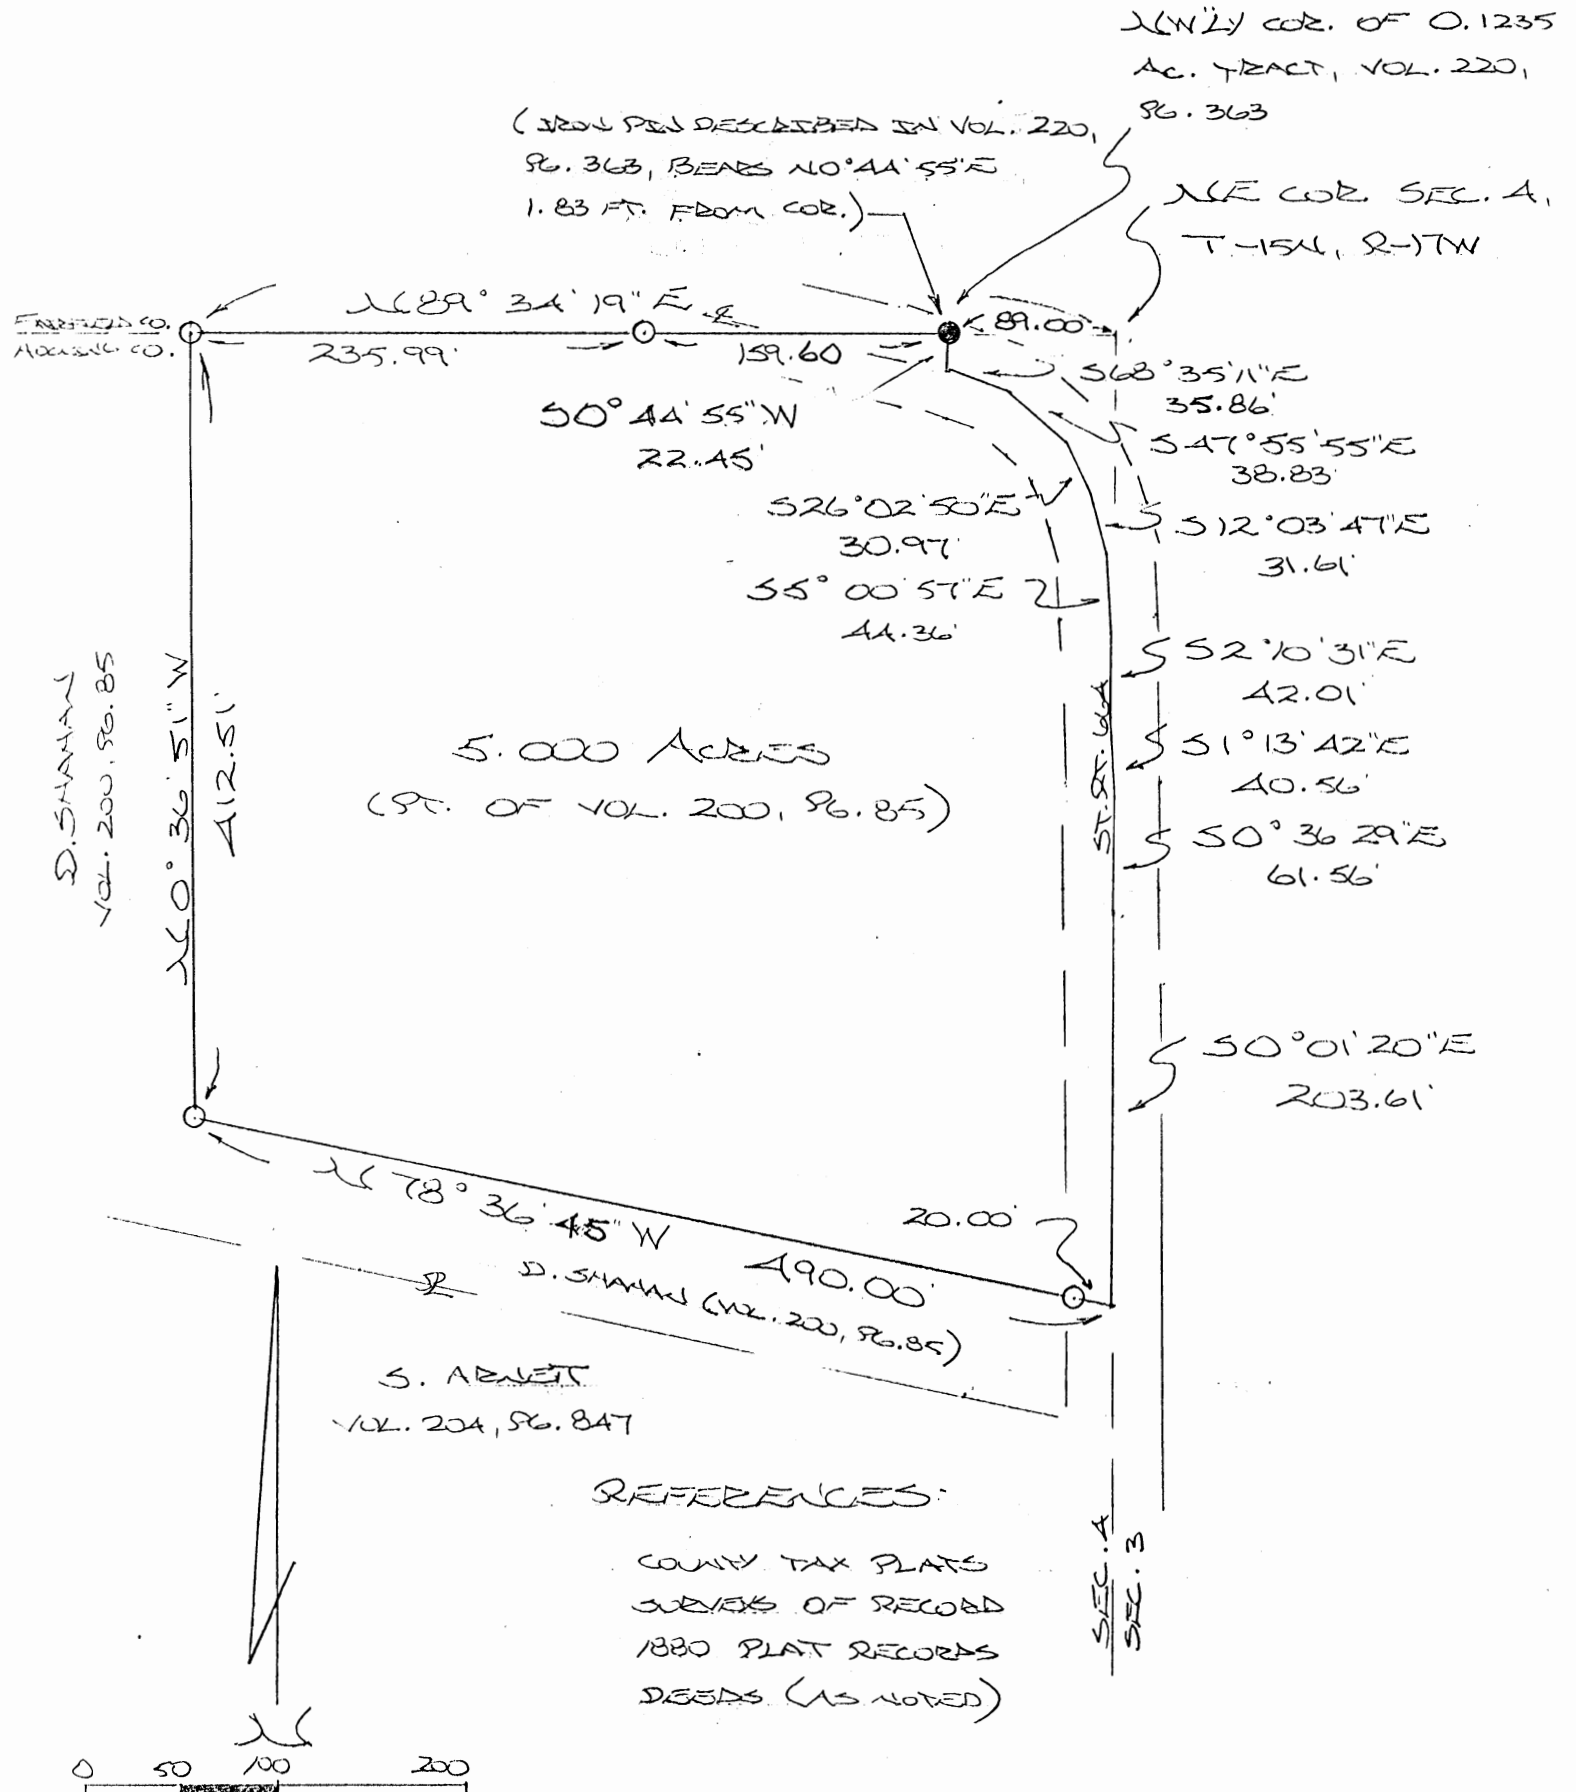 N'W'LY COR. OF 0.1235
AC. TRACT, VOL. 220,
PG. 363
(IRON PIN DESCRIBED IN VOL. 220,
PG. 363, BEARS N0°44'55"E
1.83 FT. FROM COR.)
NE COR. SEC. 4,
T-15N, R-17W
FAIRFIELD CO.
HOCKING CO.
N89°34'19"E
235.99'
159.60
89.00
S68°35'11"E
35.86'
S0°44'55"W
22.45'
S47°55'55"E
38.83'
S26°02'50"E
30.97'
S12°03'47"E
31.61'
S5°00'57"E
44.36'
S2°10'31"E
42.01'
S1°13'42"E
40.56'
S0°36'29"E
61.56'
ST. RT. 664
D. SHAHAN
VOL. 200, PG. 85
N0°36'51"W
412.51'
5.000 ACRES
(PT. OF VOL. 200, PG. 85)
S0°01'20"E
203.61'
N78°36'45"W
490.00'
20.00'
D. SHAHAN (VOL. 200, PG. 85)
S. ARNETT
VOL. 204, PG. 847
REFERENCES:
COUNTY TAX PLATS
SURVEYS OF RECORD
1880 PLAT RECORDS
DEEDS (AS NOTED)
SEC. 4
SEC. 3
N
0 50 100 200